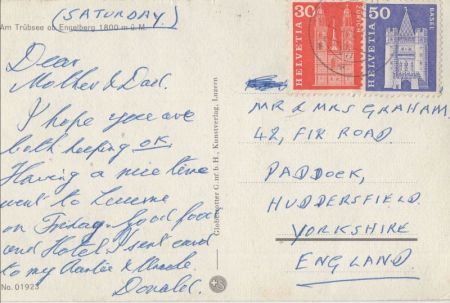 (SATURDAY)
Am Trübsee ob Engelberg 1800 m ü. M.
Dear
Mother & Dad.
I hope you are
both keeping OK.
Having a nice time
went to Lucerne
on Friday. Good food
and Hotel I sent card
to my Auntie & Uncle.
Donald.
No. 01923
Globetrotter G.m.b.H., Kunstverlag, Luzern
30
HELVETIA
50
HELVETIA
BASEL
MR & MRS GRAHAM.
42, FIR ROAD.
PADDOCK,
HUDDERSFIELD.
YORKSHIRE
ENGLAND.